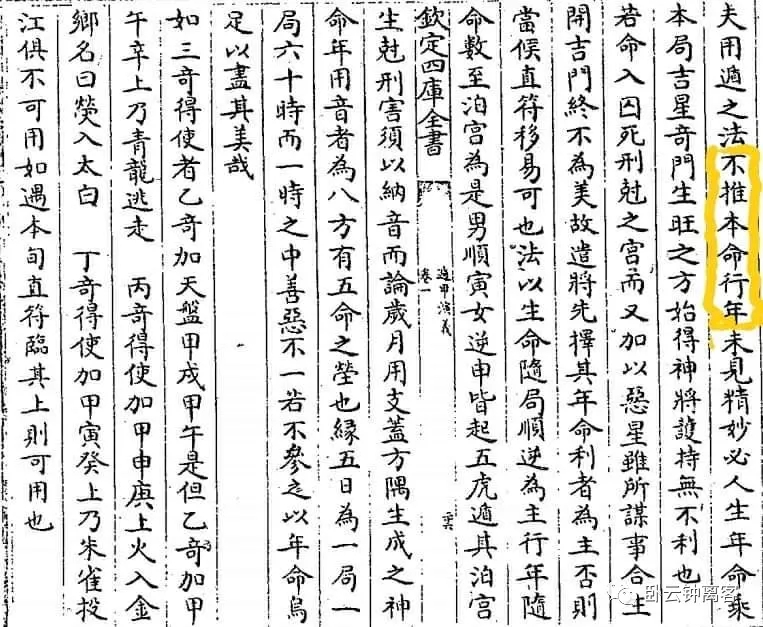 夫用遁之法不推本命行年未見精妙必人生年命乘
本局吉星奇門生旺之方始得神將護持無不利也
若命入囚死刑尅之宮而又加以惡星雖所謀事合主
開吉門終不為美故遣將先擇其年命利者為主否則
當候直符移易可也法以生命隨局順逆為主行年隨
命數至泊宮為是男順寅女逆申皆起五虎遁其泊宮
欽定四庫全書
遁甲演義
卷一
生尅刑害須以納音而論歲月用支蓋方隅生成之神
命年用音者為八方有五命之塋也緣五日為一局一
局六十時而一時之中善惡不一若不參之以年命烏
足以盡其美哉
如三奇得使者乙奇加天盤甲戌甲午是但乙奇加甲
午辛上乃青龍逃走 丙奇得使加甲申庚上火入金
鄉名曰熒入太白 丁奇得使加甲寅癸上乃朱雀投
江俱不可用如遇本旬直符臨其上則可用也
卧云钟离客